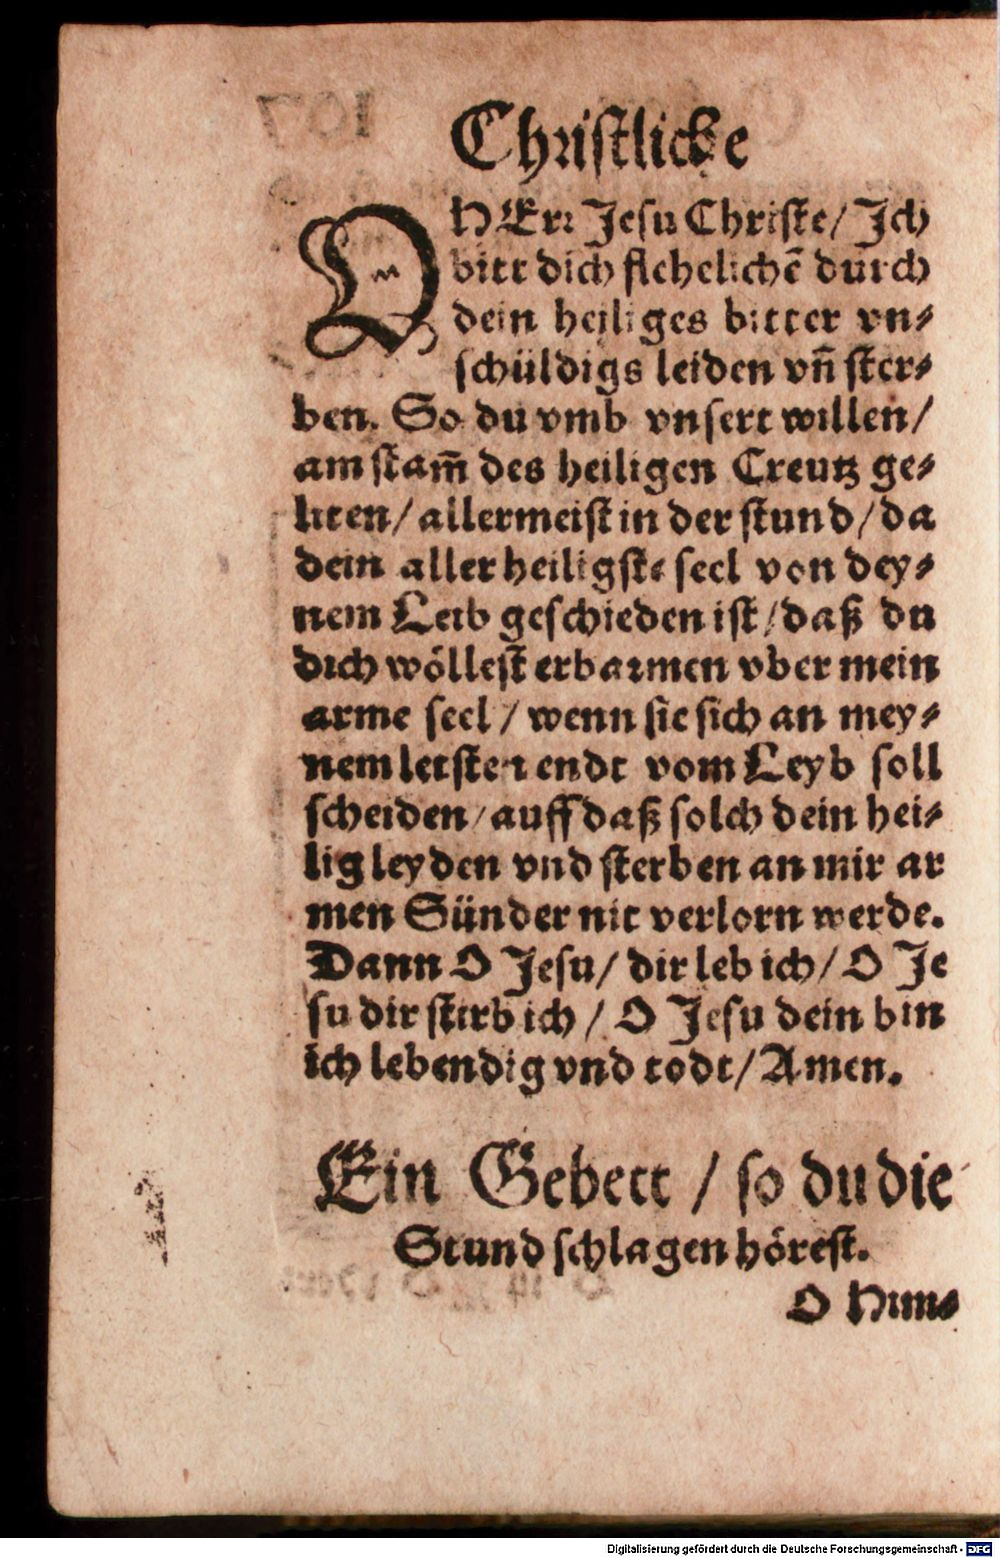 Christliche
O HErr Jesu Christe/ Jch
bitt dich flehelichē durch
dein heiliges bitter vn⸗
schüldigs leiden vñ ster⸗
ben. So du vmb vnsert willen/
am stam̄ des heiligen Creutz ge⸗
litten/ allermeist in der stund/ da
dein allerheiligste seel von dey⸗
nem Leib geschieden ist/ daß du
dich wöllest erbarmen vber mein
arme seel/ wenn sie sich an mey⸗
nem letsten endt vom Leyb soll
scheiden/ auff daß solch dein hei⸗
lig leyden vnd sterben an mir ar
men Sünder nit verlorn werde.
Dann O Jesu/ dir leb ich/ O Je
su dir stirb ich/ O Jesu dein bin
ich lebendig vnd todt/ Amen.
Ein Gebett/ so du die
Stund schlagen hörest.
O Him⸗
Digitalisierung gefördert durch die Deutsche Forschungsgemeinschaft - DFG